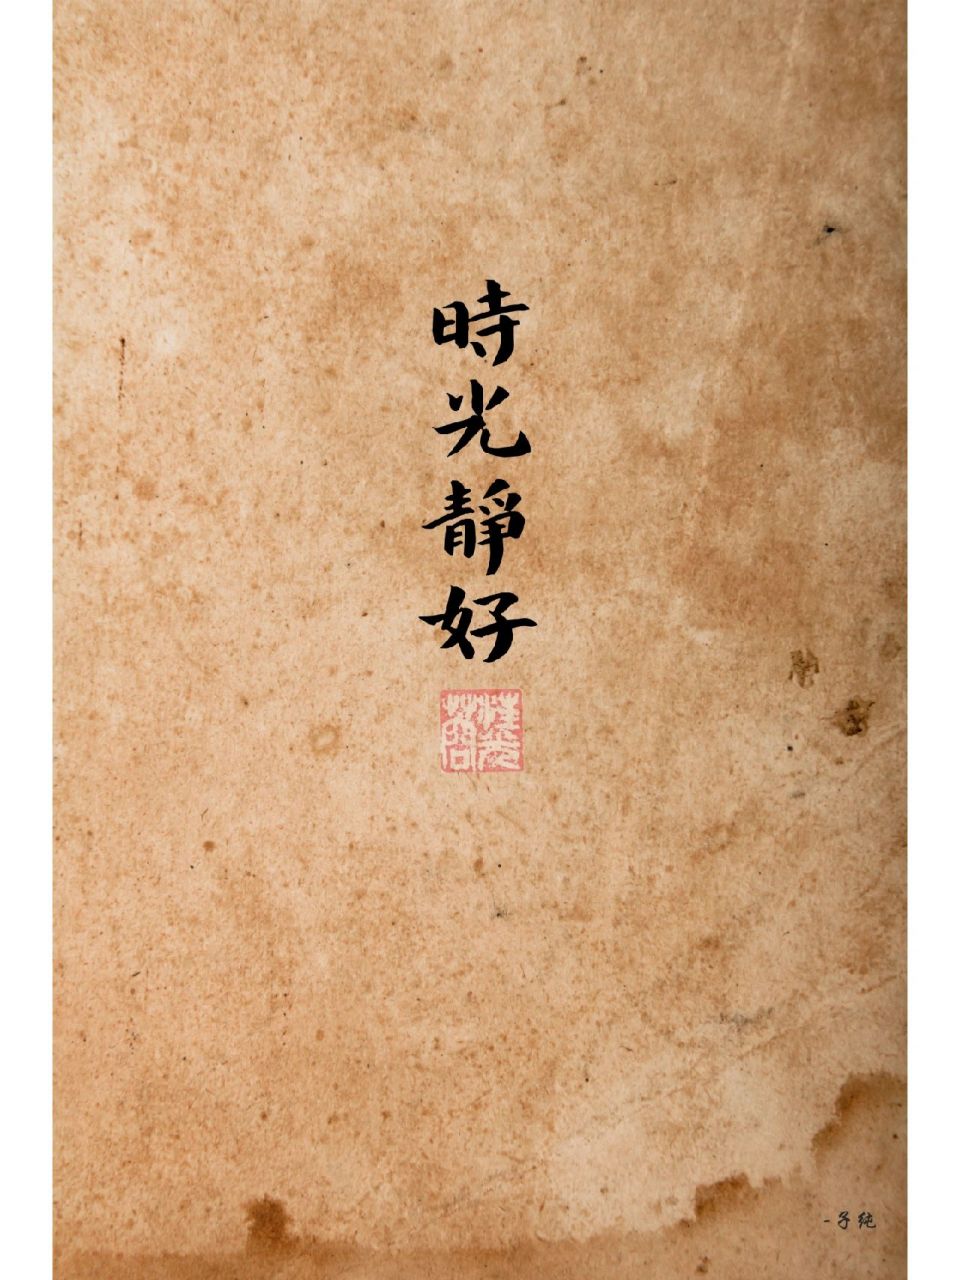 時光靜好
-子純